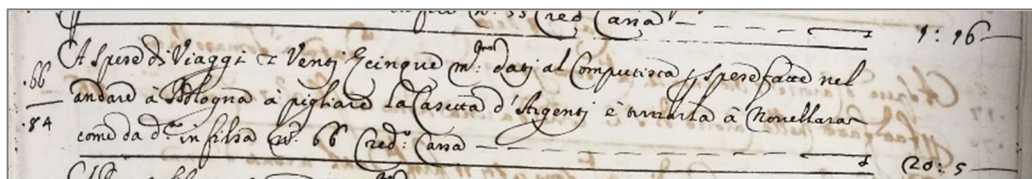 in filza n.° 55 Cred.° Cassa 1: 16
A Spese di Viaggi £ Venti 5 cinque m.ta dati al Computista p spese fatte nel
.66 andare à Bologna à pigliare la Cassetta d'Argenti è portarla à Novellara
.84 come da d.a in filza n.° 66 Cred.° Cassa 20: 5